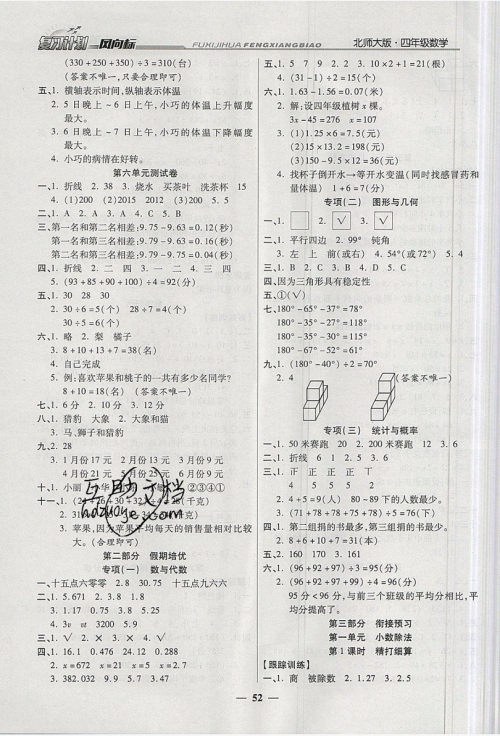 复习计划 风向标
FUXIJIHUA FENGXIANGBIAO
北师大版·四年级数学
(330+250+350)÷3=310(台)
(答案不唯一,只要合理即可)
五、1. 横轴表示时间,纵轴表示体温
2. 5日晚上~6日上午,小巧的体温上升幅度
最大。
3. 6日晚上~7日上午,小巧的体温下降幅度
最大。
4. 小巧的病情在好转。
第六单元测试卷
一、1. 折线 2. 38 3. 烧水 买茶叶 洗茶杯 15
4. (1)200 (2)2015 2012 (3)200 5. 5
二、1. A 2. A 3. A 4. C 5. B
三、第一名和第二名相差:9.75-9.63=0.12(秒)
第一名和第三名相差:9.79-9.63=0.16(秒)
第二名和第三名相差:9.79-9.75=0.04(秒)
四、1. 折线 2. 二 四 3. 一 二 4. 三 四
5. (93+85+90+100)÷4=92(分)
五、1. 30 28 30
2. 30÷6=5(个) 28÷7=4(个)
30÷5=6(个)
六、1. 略 2. 梨 橘子
3. 8+10+13+7=38(名)
4. 自己完成
5. 例:喜欢苹果和桃子的一共有多少名同学?
8+10=18(名) (答案不唯一)
七、1. 6分 2. 10分 3. 12分
八、1. 猎豹 大象 2. 大象和猫
3. 马、狮子和猎豹
九、2. 28
3. 1月份17元 2月份13元 3月份9元
4月份21元 5月份25元 6月份9元
十、1. 小丽
②③④①
十一、1.
3. 苹果,因为苹果平均每天的销售量相对比较
大。(合理即可)
第二部分 假期培优
专项(一) 数与代数
一、十五点六零零 2. 8 30.75 十五点九六六
二、1. 5.671 2. 3.8 1.8
3. 1.17 0.75 3.8 5.25
4. 3v vt 3200 5.9
三、1. √ 2. × 3. × 4. √
四、1. 16.1 0.476 24.12 0.288
2. x=672 x=21 x=5 x=2.7
3. 382.032 9.9 5.7 3.47
五、1. 5 7 9 2. 2 3. 10×2+1=21(根)
4. (31-1)÷2=15(个)
六、1. 1.63-1.56=0.07(米)
2. 解:设四年级植树x棵。
3x-45=276 x=107
3. (1)1.25×6=7.5(元)
(2)15×13.2=198(元)
(3)150-9.5×12=36(元)
4. 找杯子倒开水→等开水变温(同时找感冒药和
量体温) 1+6=7(分)
专项(二) 图形与几何
一、1. □ 2. √ 3. √
二、1. 平行四边 2. 99° 钝角
3. 左 上 前(或右) 4. 54°(或72°) 5. 4
三、1. B 2. C 3. B 4. D 5. C
四、因为三角形具有稳定性
五、①(√)
七、180°-65°-37°=78°
180°-35°-27°=118°
180°-35°-30°=115°
180°-67°-52°=61°
九、1. (180°-40°)÷2=70°
2. 4 (答案不唯一)
专项(三) 统计与概率
一、1. 50米赛跑 20 2. 200米赛跑 12 3. 6
二、1. 折线 6 1 2. 5 3. 6
三、1. 正 正 正 正 丅
4 5 5 5 2
2. 4+5=9(人) 80~89下的人数最少。
3. (71+78+78+75+78)÷5=76(下)
四、1. 第二组捐的书最多,第三组捐的书最少。
2. 8+6+10+7=31(本)
五、2. 160 170 3. 161
六、2. (96+92+97)÷3=95(分)
(96+92+97+99)÷4=96(分)
95分<96分,与前三个班级的平均分相比,平
均分提高了。
第三部分 衔接预习
第一单元 小数除法
第1课时 精打细算
【跟踪训练】
一、1. 商 被除数 2. 1.27 3. 2.5
52
互助文档
hdzuoye.com